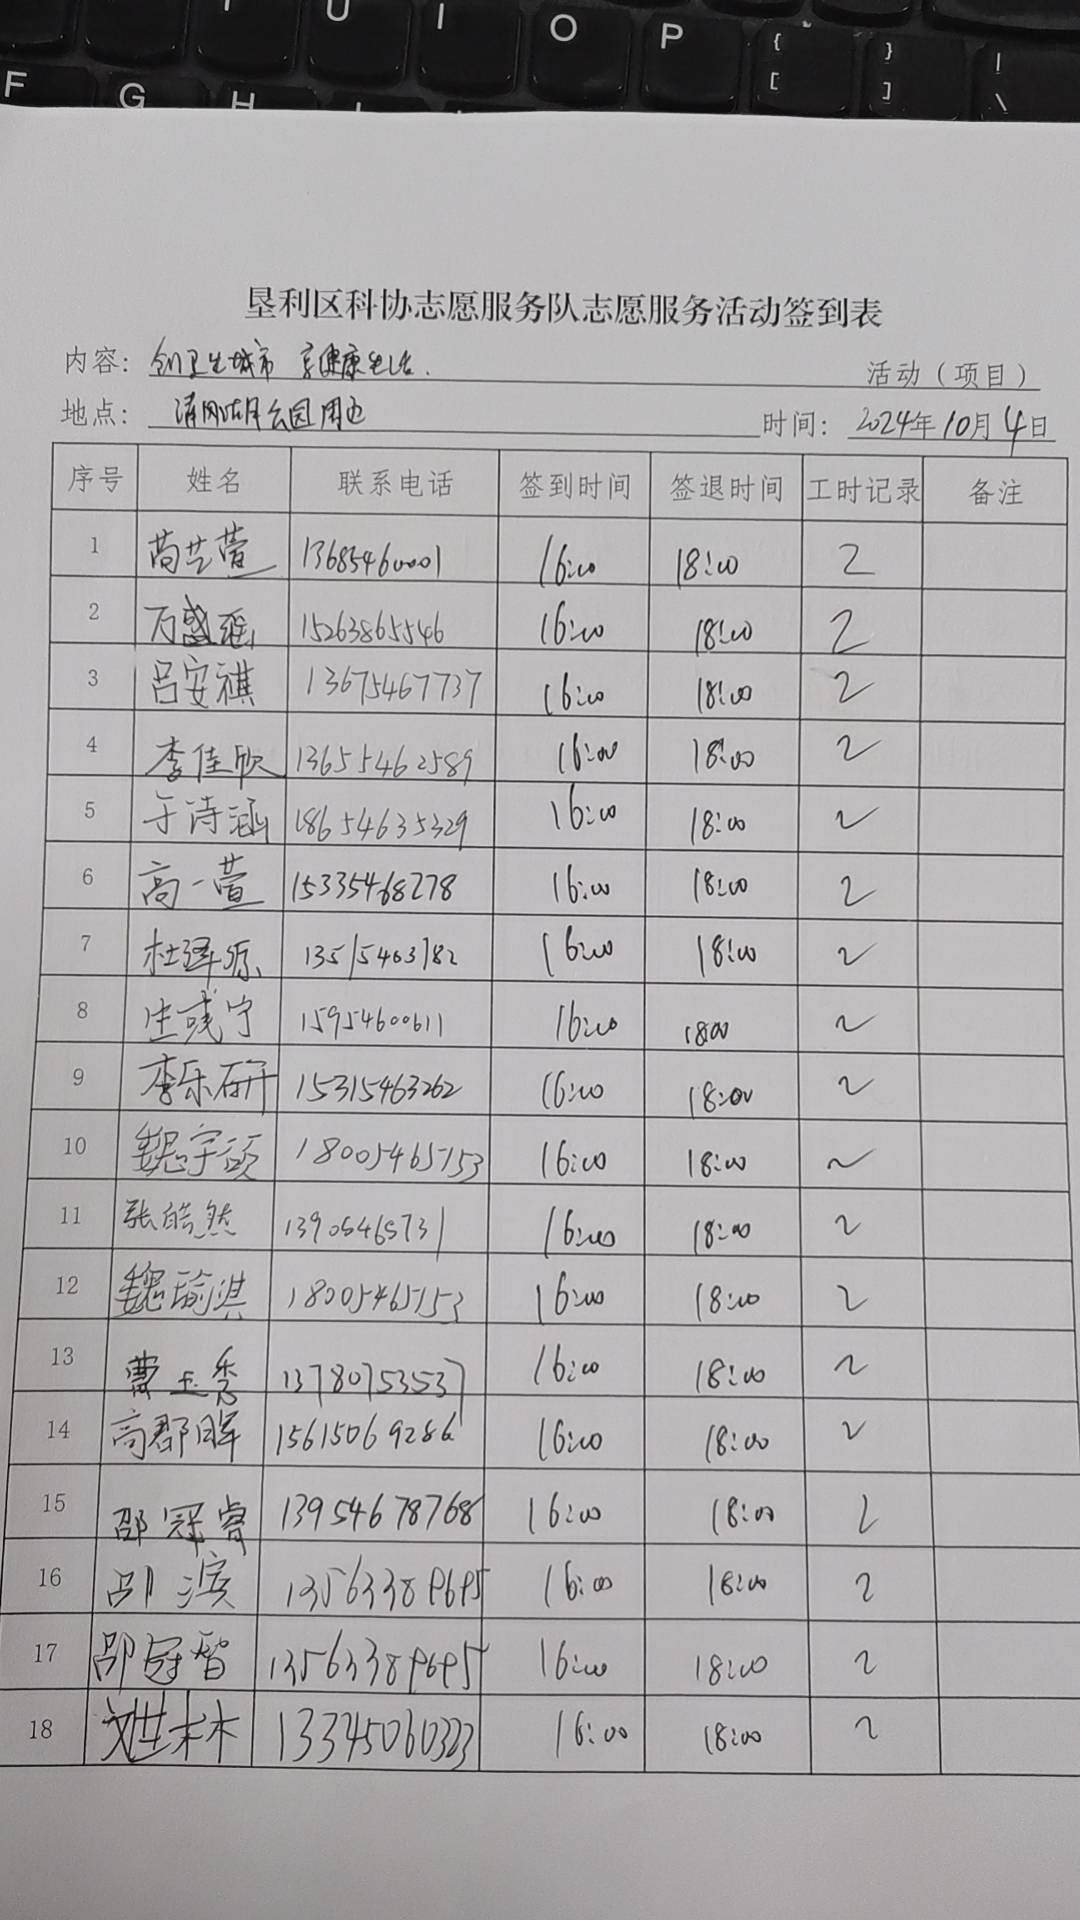 U I O P { [ } ] | \
F G H
垦利区科协志愿服务队志愿服务活动签到表
内容: 创卫生城市 享健康生活. 活动（项目）
地点: 清风湖公园周边 时间: 2024年10月4日
序号 姓名 联系电话 签到时间 签退时间 工时记录 备注
1 高艺萱 13685460001 16:00 18:00 2
2 万盛瑶 15263865546 16:00 18:00 2
3 吕安祺 13675467737 16:00 18:00 2
4 李佳欣 13655462589 16:00 18:00 2
5 于诗涵 18654635329 16:00 18:00 2
6 高一萱 15335468278 16:00 18:00 2
7 杜泽源 13515463782 16:00 18:00 2
8 生彧宁 15954600611 16:00 18:00 2
9 李乐研 15315463262 16:00 18:00 2
10 魏宇硕 18005465153 16:00 18:00 2
11 张皓然 13905465731 16:00 18:00 2
12 魏瑜淇 18005465153 16:00 18:00 2
13 曹玉秀 13780753537 16:00 18:00 2
14 高郡晖 15615069286 16:00 18:00 2
15 邵冠睿 13954678768 16:00 18:00 2
16 滨 13563389695 16:00 18:00 2
17 邵冠智 13563389695 16:00 18:00 2
18 13345060323 16:00 18:00 2